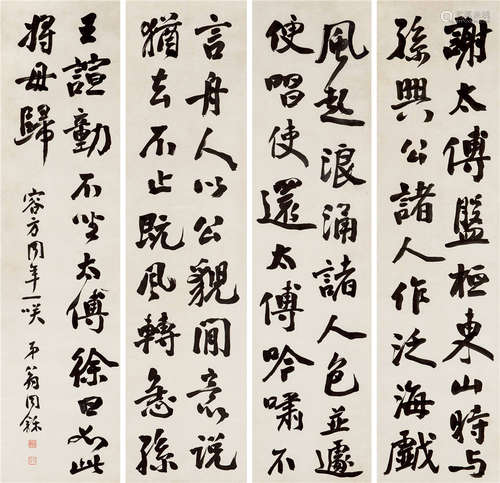 謝太傅盤桓東山時与
孫興公諸人作泛海戲
風起浪涌諸人色並遽
便唱使還太傅吟嘯不
言舟人以公貌閒意說
猶去不止既風轉急孫
王諠動不坐太傅徐曰如此
將毋歸
容方同年一咲 弟翁同龢